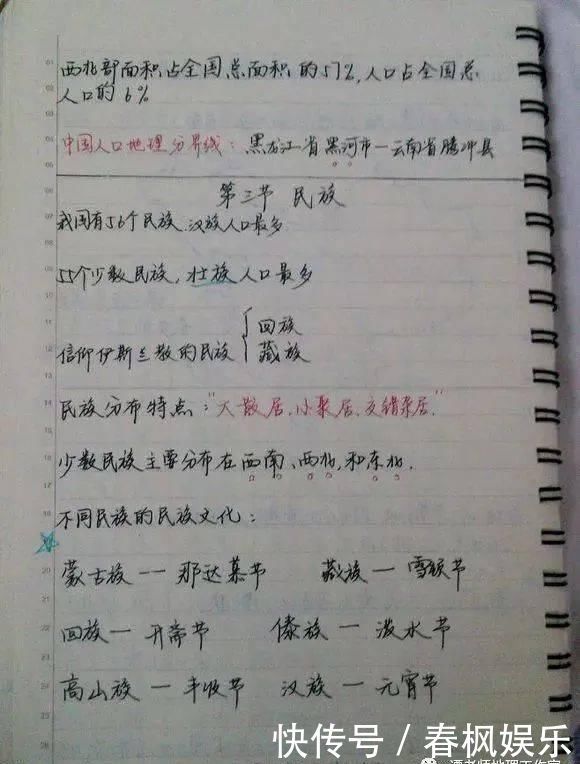 西北部面积占全国总面积的57%,人口占全国总
人口的6%
中国人口地理分界线：黑龙江省黑河市—云南省腾冲县
第三节 民族
我国有56个民族,汉族人口最多
55个少数民族,壮族人口最多
信仰伊斯兰教的民族
回族
藏族
民族分布特点："大散居、小聚居、交错杂居."
少数民族主要分布在西南、西北,和东北.
不同民族的民族文化：
蒙古族 — 那达慕节 藏族 — 雪顿节
回族 — 开斋节 傣族 — 泼水节
高山族 — 丰收节 汉族 — 元宵节
快传号 / 春风娱乐